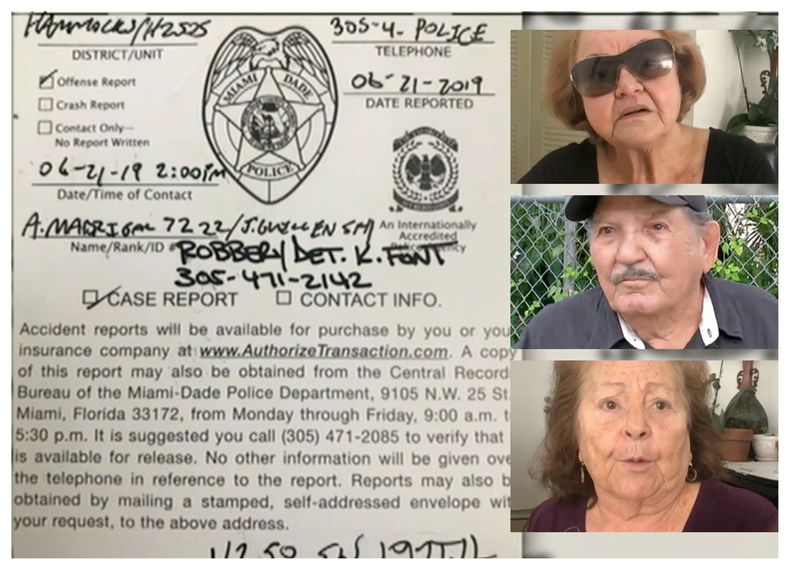 HAMMOCKS/H2525
DISTRICT/UNIT
305-4-POLICE
TELEPHONE
Offense Report
06-21-2019
DATE REPORTED
Crash Report
Contact Only—
No Report Written
06-21-19 2:00PM
Date/Time of Contact
MIAMI DADE
POLICE
A. MADRIGAL 7222/J. GUILLEN
Name/Rank/ID #
An Internationally
Accredited
ROBBERY/DET. K. FONT
305-471-2142
CASE REPORT
CONTACT INFO.
Accident reports will be available for purchase by you or you
insurance company at www.AuthorizeTransaction.com. A copy
of this report may also be obtained from the Central Record
Bureau of the Miami-Dade Police Department, 9105 N.W. 25 St
Miami, Florida 33172, from Monday through Friday, 9:00 a.m. t
5:30 p.m. It is suggested you call (305) 471-2085 to verify that
is available for release. No other information will be given ove
the telephone in reference to the report. Reports may also b
obtained by mailing a stamped, self-addressed envelope wit
your request, to the above address.